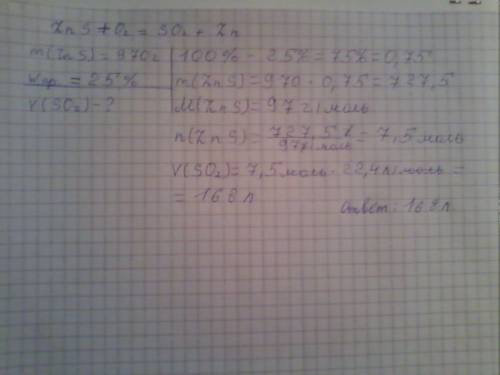 ZnS + O₂ = SO₂ + Zn
m(ZnS) = 970г | 100% - 25% = 75% = 0,75
wпр = 25% | m(ZnS) = 970 · 0,75 = 727,5
V(SO₂) - ? | M(ZnS) = 97 г/моль
n(ZnS) = 727,5 г / 97 г/моль = 7,5 моль
V(SO₂) = 7,5 моль · 22,4 л/моль =
= 168 л
Ответ: 168 л